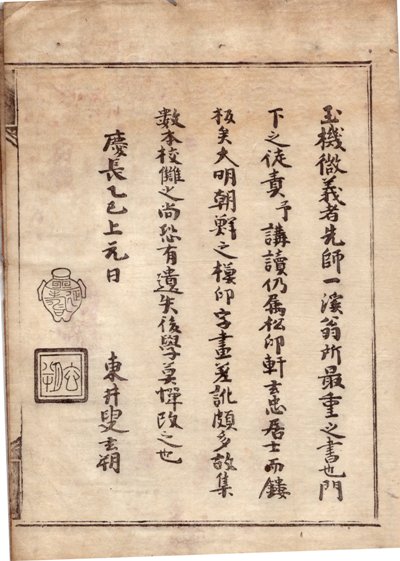 玉機微義者先師一溪翁所最重之書也門
下之徒責予講讀仍属松印軒玄忠居士而鏤
板矣大明朝鮮之模印字畫差訛頗多故集
数本校讎之尚恐有遺失後學莫憚改之也
慶長乙巳上元日
東井叟玄朔
玄朔